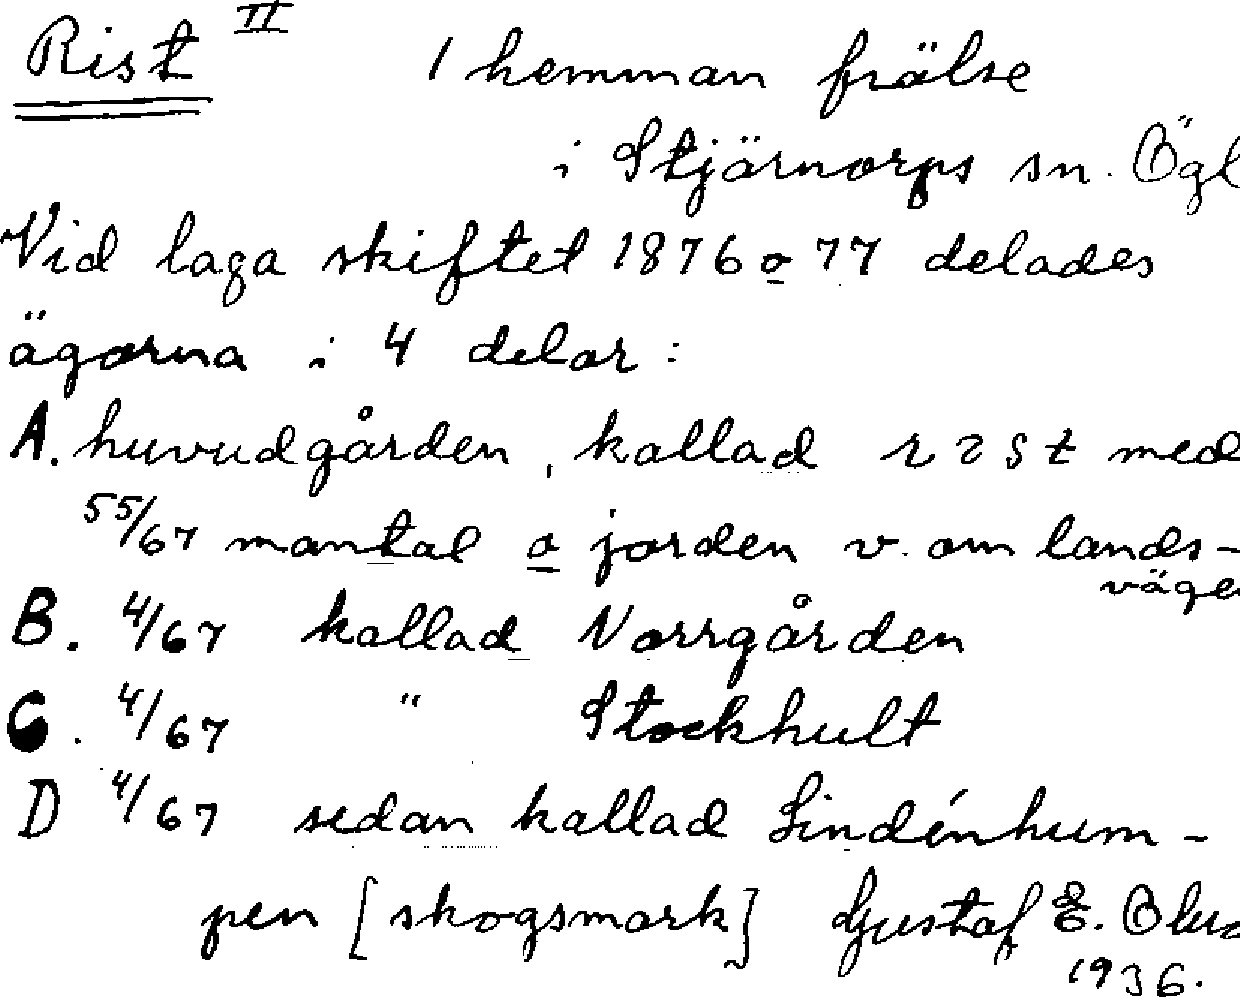 Rist II 1 hemman frälse
i Stjärnorps sn. Ögl
Vid laga skiftet 1876 o 77 delades
ägorna i 4 delar:
A. huvudgården, kallad rist med
55/67 mantal o jorden v. om lands-
väge
B. 4/67 kallad Norrgården
C. 4/67 " Stockhult
D 4/67 sedan kallad Lindénhum-
pen [skogsmark] Gustaf E.
1936.